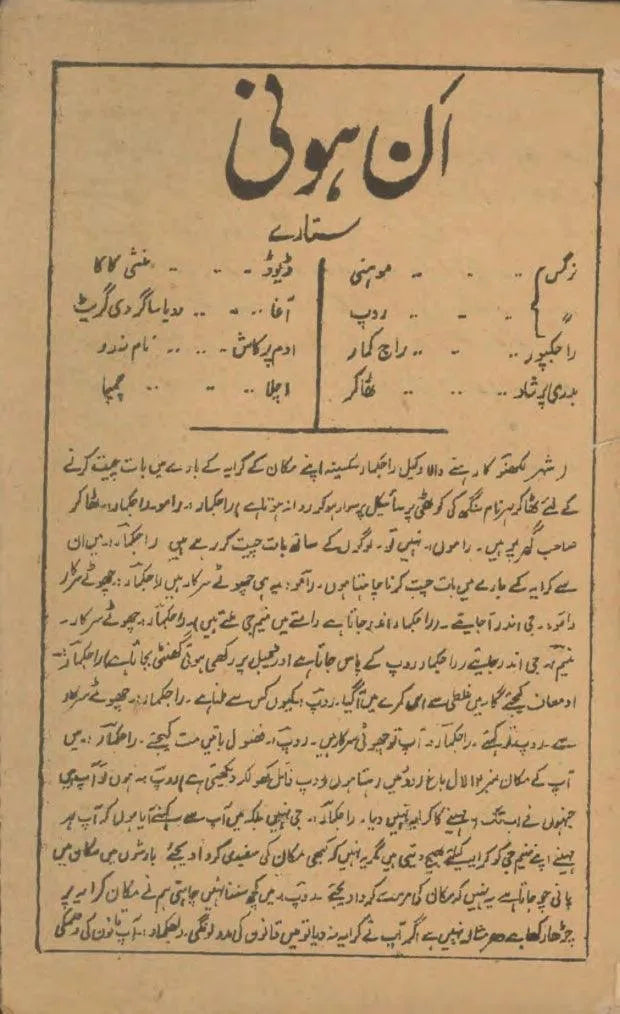 اَن ہونی
ستارے
نرگس .. .. .. موہنی
〃 .. .. .. روپ
راجکپور .. .. .. راج کمار
بدری پرشاد .. .. .. ٹھاکر
ڈیوڈ .. .. .. منشی کاکا
آغا .. .. .. ودیا ساگر دی گریٹ
اوم پرکاش .. .. .. شام سندر
اچلا .. .. .. چمپا
( شہر لکھنؤ کا رہنے والا وکیل راجکمار سکسینہ اپنے مکان کے کرایہ کے بارے میں بات چیت کرنے
کے لئے ٹھاکر ہرنام سنگھ کی کوٹھی پر سائیکل پر سوار ہو کر روانہ ہوتا ہے ) راجکمار :۔ رامو راجکمار :۔ ٹھاکر
صاحب گھر پر ہیں ۔ راموں :۔ نہیں تو ۔ لوگوں کے ساتھ بات چیت کر رہے ہیں راجکمار :۔ میں ان
سے کرایہ کے بارے میں بات چیت کرنا چاہتا ہوں ۔ رامو :۔ یہ ہی چھوٹے سرکار ہیں راجکمار :۔ چھوٹے سرکار
رامو :۔ جی اندر آجایئے ۔ ( راجکمار اندر جاتا ہے راستے میں منیم جی ملتے ہیں ) راجکمار :۔ چھوٹے سرکار ۔
منیم :۔ جی اندر چلیئے ( راجکمار روپ کے پاس جاتا ہے اور ٹیبل پر رکھی ہوئی گھنٹی بجاتا ہے ) راجکمار :۔
او معاف کیجئے گا میں غلطی سے اس کمرے میں آگیا ۔ روپ :۔ کیوں کس سے ملنا ہے ۔ راجکمار :۔ چھوٹے سرکار
سے ۔ روپ :۔ کہئے ۔ راجکمار :۔ آپ تو چھوٹی سرکار ہیں ۔ روپ :۔ فضول باتیں مت کیجئے ۔ راجکمار :۔ میں
آپ کے مکان نمبر لال باغ روڈ میں رہتا ہوں ( روپ فائل کھولکر دیکھتی ہے ) روپ :۔ ہوں تو آپ ہیں
جنہوں نے اب تک ۶ مہینے کا کرایہ نہیں دیا ۔ راجکمار :۔ جی نہیں بلکہ میں آپ سے یہ کہنے آیا ہوں کہ آپ ہر
مہینے اپنے منیم جی کو کرایہ کیلئے بھیج دیتی ہیں مگر یہ نہیں کہ کبھی مکان کی سفیدی کروا دیجئے بارشوں میں مکان میں
پانی چو جاتا ہے یہ نہیں کہ مکان کی مرمت کروا دیجئے ۔ روپ :۔ میں کچھ سننا نہیں چاہتی ہم نے مکان کرایہ پر
چڑھا رکھا ہے دھرمشالہ نہیں ہے اگر آپ نے کرایہ نہ دیا تو میں قانون کی مدد لونگی ۔ راجکمار :۔ آپ قانون کی دھمکی